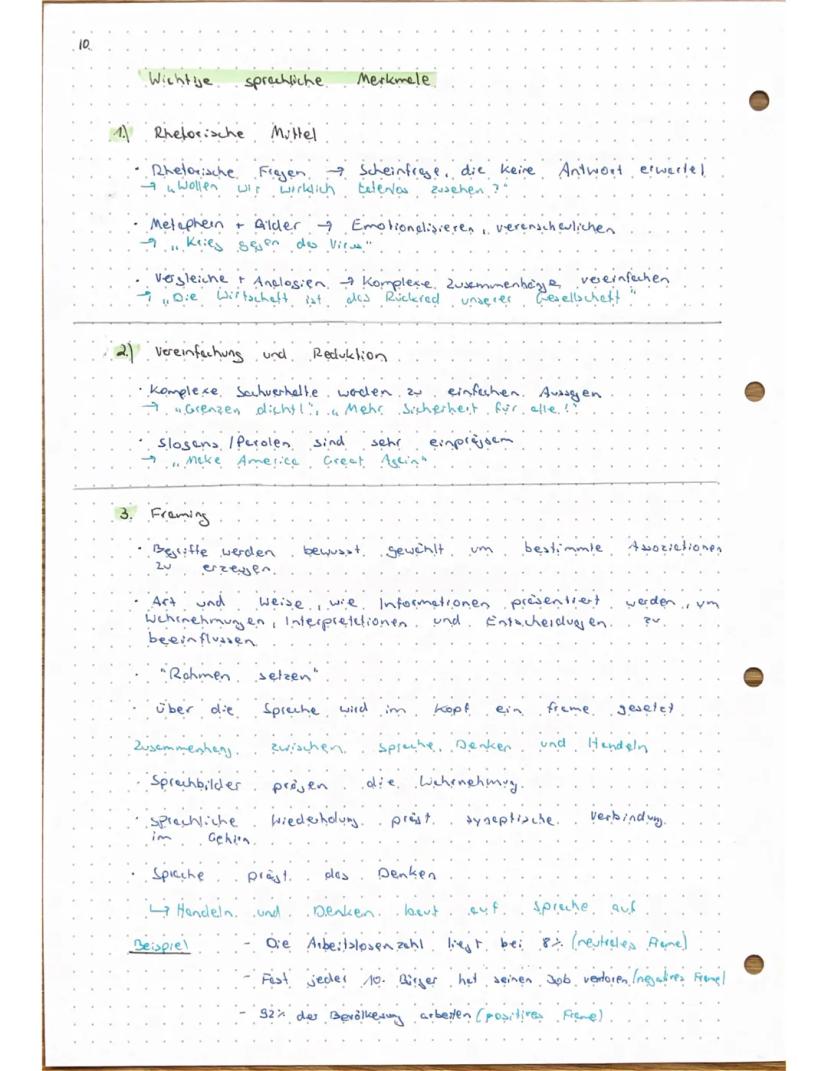 10.
Wichtige sprachliche Merkmale
1.) Rhetorische Mittel
· Rhetorische Fragen → Scheinfrage, die keine Antwort erwartet
→ „Wollen wir wirklich tatenlos zusehen?"
· Metaphern + Bilder → Emotionalisieren, veranschaulichen
→ „Krieg gegen das Virus"
· Vergleiche + Analogien → Komplexe Zusammenhänge vereinfachen
→ „Die Wirtschaft ist das Rückrad unserer Gesellschaft"
2.) Vereinfachung und Reduktion
· Komplexe Sachverhalte werden zu einfachen Aussagen
→ „Grenzen dicht!", „Mehr Sicherheit für alle!"
· Slogans / Parolen sind sehr einprägsam
→ „Make America Great Again"
3. Framing
· Begriffe werden bewusst gewählt um bestimmte Assoziationen
zu erzeugen.
· Art und Weise, wie Informationen präsentiert werden, um
Wahrnehmungen, Interpretationen und Entscheidugen zu
beeinflussen
· "Rahmen setzen"
· über die Sprache wird im Kopf ein frame gesetzt
Zusammenhang zwischen Sprache, Denken und Handeln
· Sprachbilder prägen die Wahrnehmung.
· sprachliche Wiederholung prägt synaptische Verbindung
im Gehirn
· Sprache prägt das Denken
↳ Handeln und Denken baut auf Sprache auf
Beispiel - Die Arbeitslosenzahl liegt bei 8% (neutrales Frame)
- Fast jeder 10. Bürger hat seinen Job verloren (negatives Frame)
- 92% der Bevölkerung arbeiten (positives Frame)